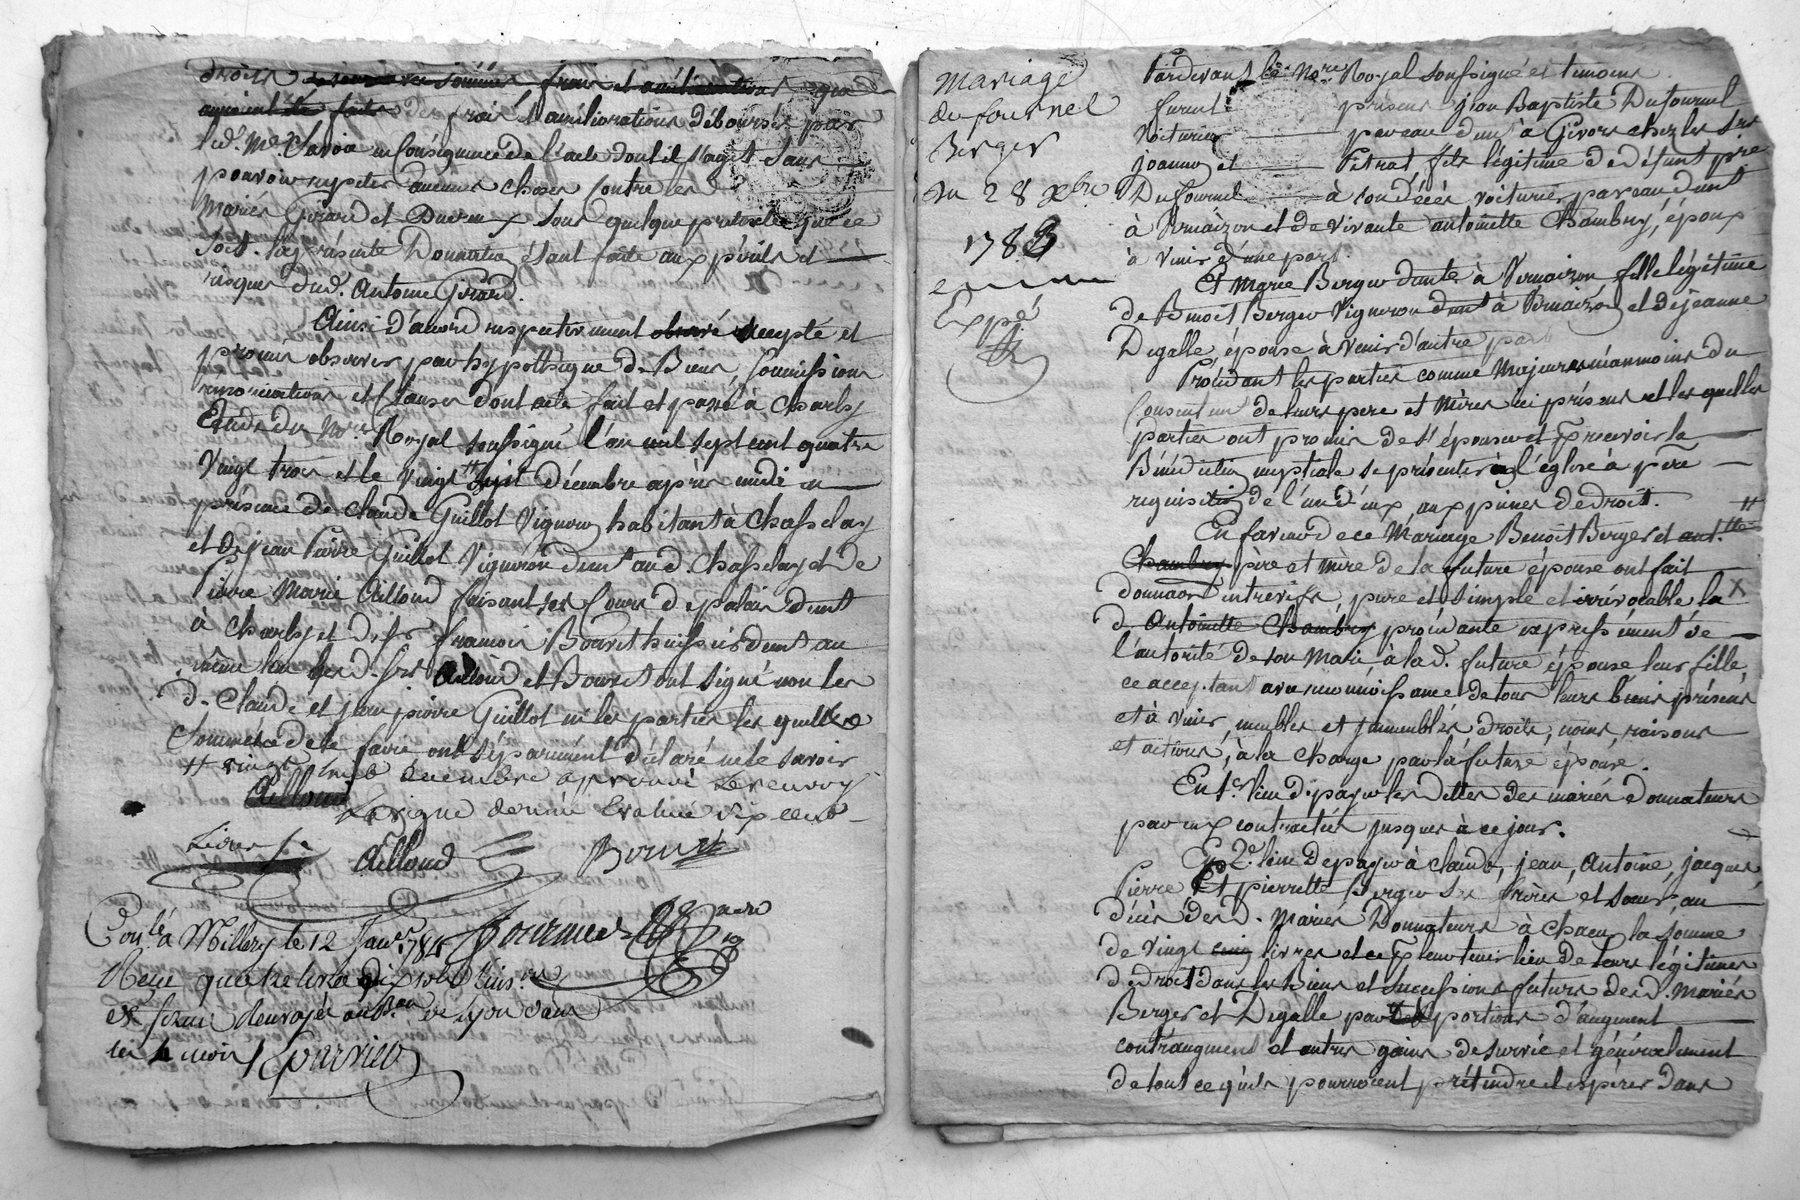 droits
des frais & améliorations déboursés par
led. Me. Clavoie en Conséquence de l'acte dont il s'agit sans
pouvoir repeter aucunes choses Contre les d.
Mariés Girard et sous quelque pretexte que ce
soit. la présente Donnation étant faite aux périls et
risques dud. Antoine Girard.
Ainsi d'accord respectivement accepté et
promis observer par hypotheque de Biens, soumissions
renonciations et Clauses dont acte fait et passé à Charly
Etude du Nore. Royal soussigné l'an mil sept cent quatre
Vingt trois et le Vingt huit décembre après midi en
présence de Claude Guillot Vigneron habitant à Chasselay
et de jean Pierre Guillot Vigneron demt. aud. Chasselay et de
Pierre Marie Ailloud faisant ses Cours de palais demt.
à Charly et de Sr. francois Bouret huissier demt. au
même lieu les d. srs. Ailloud et Bouret ont signé non les
d. Claude et jean pierre Guillot ni les parties les quelles
Sommées de le faire ont séparément déclaré ne le savoir
# vingt huit décembre approuvé le renvoy
Ailloud
Ailloud Bouret
Conlé. à Millery le 12 Janer. 1784
Reçu quatre livres dix sols
& sera envoyé au Bau. de Lyon dans
les 4 mois
Mariage
du fournel
Berger
Du 28 xbre.
1783
Exppé
Pardevant le Nore. Royal soussigné et temoins
furent présens jean Baptiste Dufournel
Voiturier par eau demt. à Givors chez les Srs.
Joannoz et Petrat, fils légitime de défunt pre.
Dufournel à son décès voiturier par eau demt.
à Vernaizon et de vivante antoinette Chambry, époux
à venir d'une part.
Et Marie Berger demte. à Vernaizon fille légitime
de Benoit Berger Vigneron demt. à Vernaizon et de jeanne
Degalle, épouse à venir d'autre part
Procédant les parties comme Majeures néanmoins du
Consentemt. de leurs pere et Mères ici présens et les quelles
parties ont promis de s'épouser et recevoir la
Bénédiction nuptiale se présenter à l'église à pre.
requisition de l'un d'eux aux peines de droit.
En faveur de ce Mariage Benoît Berger et ant.tte
Chambry père et mère de la future épouse ont fait
donnaon. entrevifs, pure et simple et irrévocable la
d. Antoinette Chambry procédante expressément de
l'autorité de son Mari, à la d. future épouse leur fille,
ce acceptant avec reconnoissance de tous leurs biens présens
et à venir, meubles et immeubles, droits, noms, raisons
et actions, à la charge par la future épouse.
En 1er. lieu de payer les dettes des mariés donnateurs
par eux contractées jusques à ce jour.
En 2e. lieu de payer à claude, jean, antoine, jacques,
Pierre Et pierrette Berger ses frères et soeur, au
décès des d. Mariés Donnateurs à chacun la somme
de vingt cinq livres et ce pour tenir lieu de leurs légitimes
de droit dans les Biens et successions futures des d. Mariés
Berger et Degalle portions d'augment
contraugment et autres gains de survie et généralement
de tout ce qu'ils pourroient prétendre et espérer dans